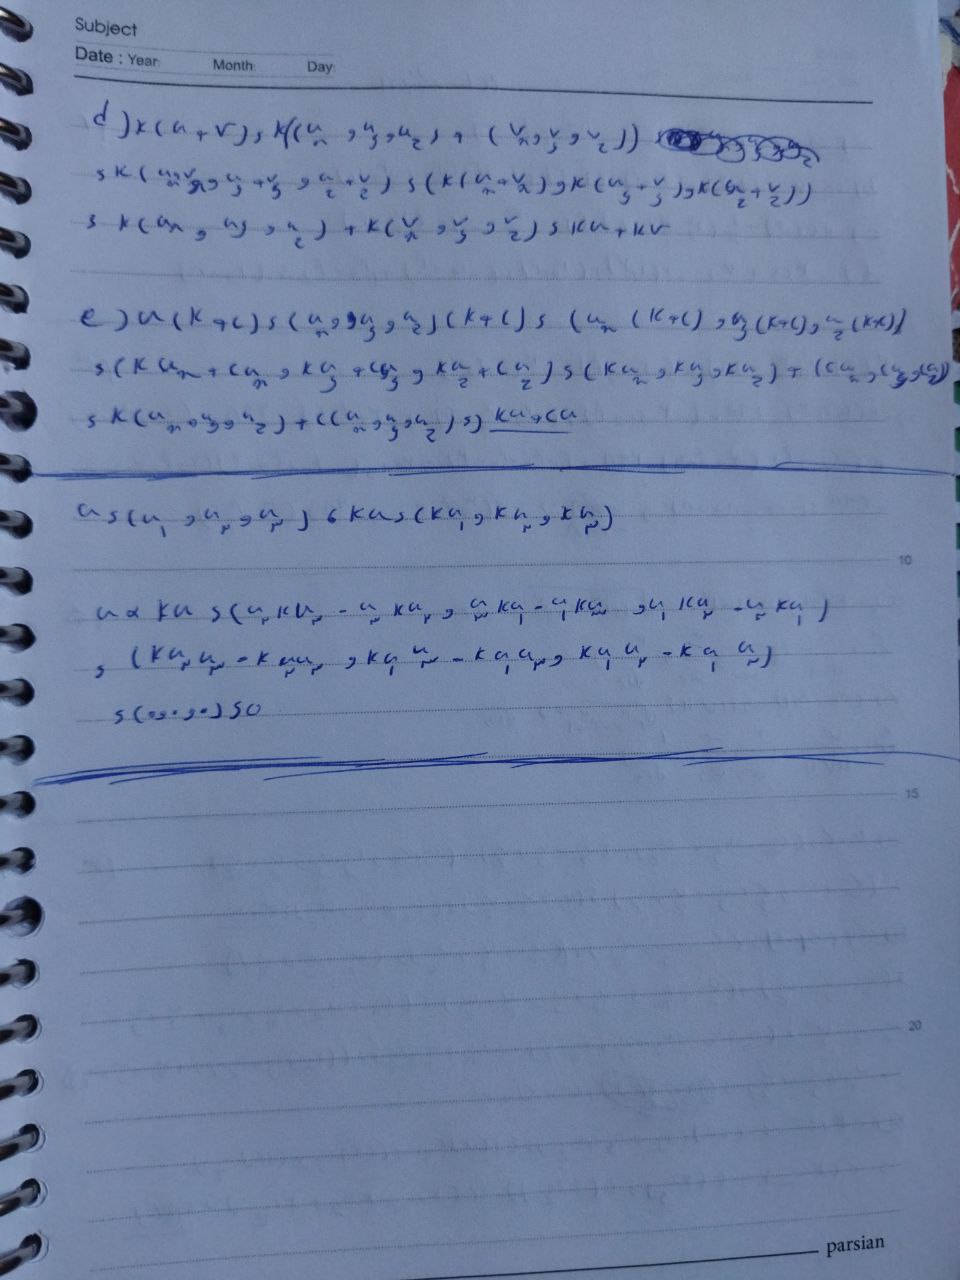 Subject
Date : Year: Month: Day:
d) K(u+v) = K((u_x, u_y, u_z) + (v_x, v_y, v_z)) =
= K(u_x+v_x, u_y+v_y, u_z+v_z) = (K(u_x+v_x), K(u_y+v_y), K(u_z+v_z))
= K(u_x, u_y, u_z) + K(v_x, v_y, v_z) = Ku+Kv
e) u(K+c) = (u_x, u_y, u_z)(K+c) = (u_x(K+c), u_y(K+c), u_z(K+c))
= (Ku_x+cu_x, Ku_y+cu_y, Ku_z+cu_z) = (Ku_x, Ku_y, Ku_z) + (cu_x, cu_y, cu_z)
= K(u_x, u_y, u_z) + c(u_x, u_y, u_z) = Ku+cu
u = (u_۱, u_۲, u_۳) , Ku = (Ku_۱, Ku_۲, Ku_۳)
10
u × Ku = (u_۲Ku_۳ - u_۳Ku_۲, u_۳Ku_۱ - u_۱Ku_۳, u_۱Ku_۲ - u_۲Ku_۱)
= (Ku_۲u_۳ - Ku_۳u_۲, Ku_۱u_۳ - Ku_۱u_۳, Ku_۱u_۲ - Ku_۱u_۲)
= (۰, ۰, ۰) = 0
15
20
parsian